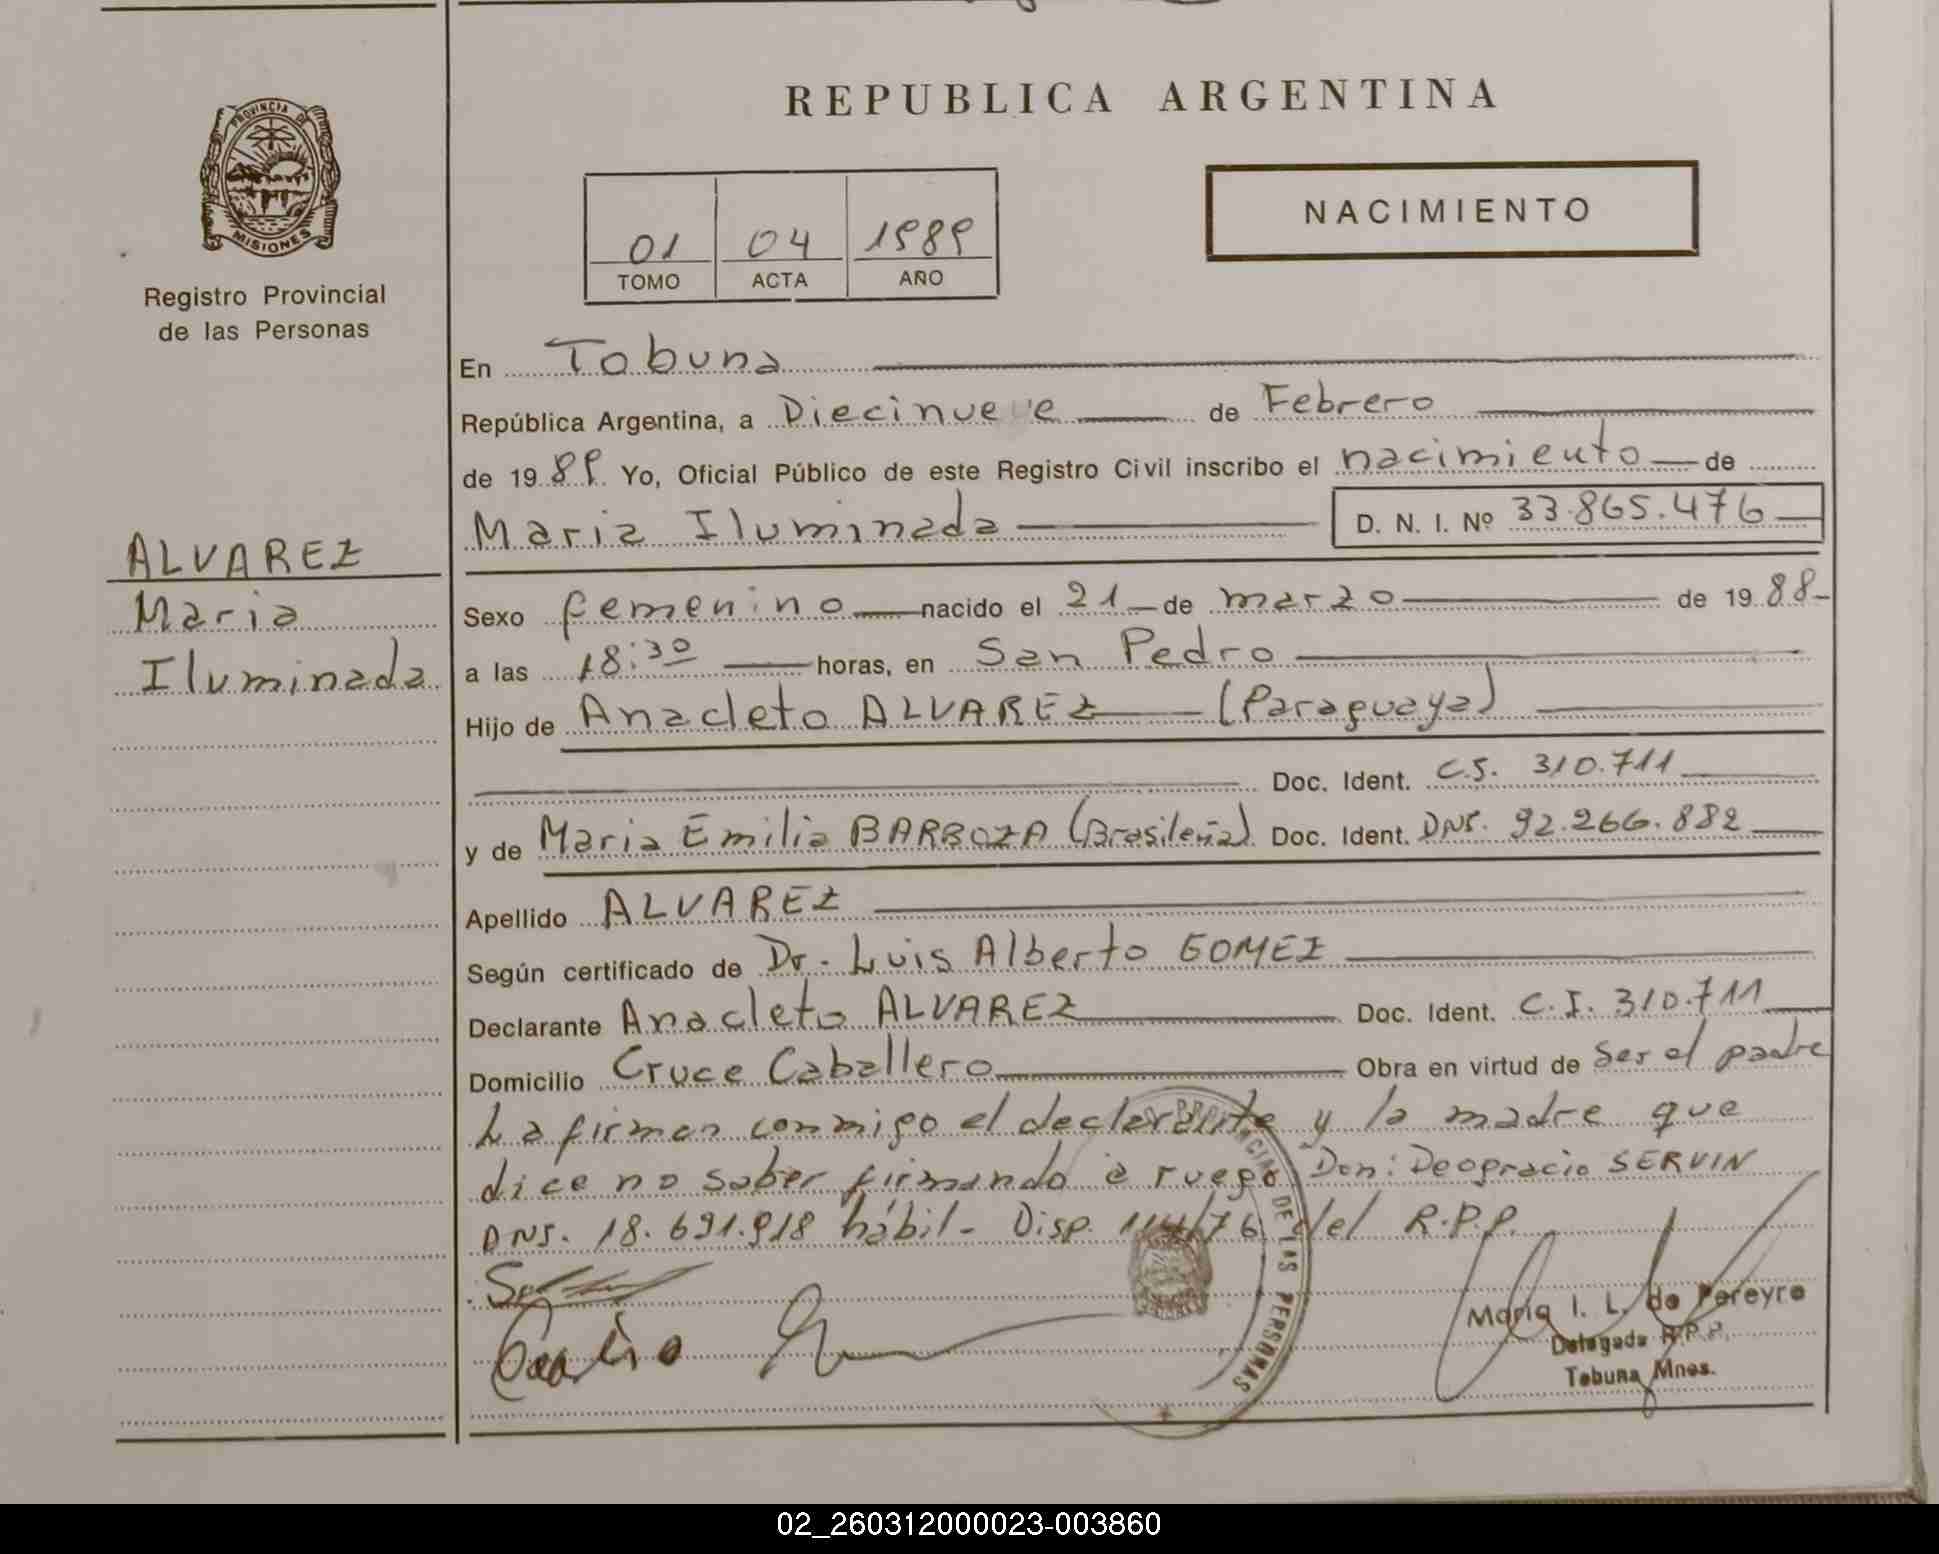 REPUBLICA ARGENTINA
PROVINCIA DE
MISIONES
Registro Provincial
de las Personas
NACIMIENTO
01 04 1989
TOMO ACTA AÑO
ALVAREZ
Maria
Iluminada
En Tobuna
República Argentina, a Diecinueve de Febrero
de 1989 Yo, Oficial Público de este Registro Civil inscribo el nacimiento de
Maria Iluminada D. N. I. Nº 33.865.476
Sexo femenino nacido el 21 de marzo de 1988
a las 18:30 horas, en San Pedro
Hijo de Anacleto ALVAREZ (Paraguaya)
Doc. Ident. C.I. 310.711
y de Maria Emilia BARBOZA (Brasileña) Doc. Ident. DNI. 92.266.882
Apellido ALVAREZ
Según certificado de Dr. Luis Alberto GOMEZ
Declarante Anacleto ALVAREZ Doc. Ident. C.I. 310.711
Domicilio Cruce Caballero Obra en virtud de ser el padre
La firman conmigo el declarante y la madre que
dice no saber firmando a ruego Don: Deogracio SERVIN
DNI. 18.691.918 hábil- Disp. 114/76 del R.P.P.
PROVINCIAL DE LAS PERSONAS
Maria I. L. de Pereyra
Delegada R.P.P.
Tobuna Mnes.
02_260312000023-003860